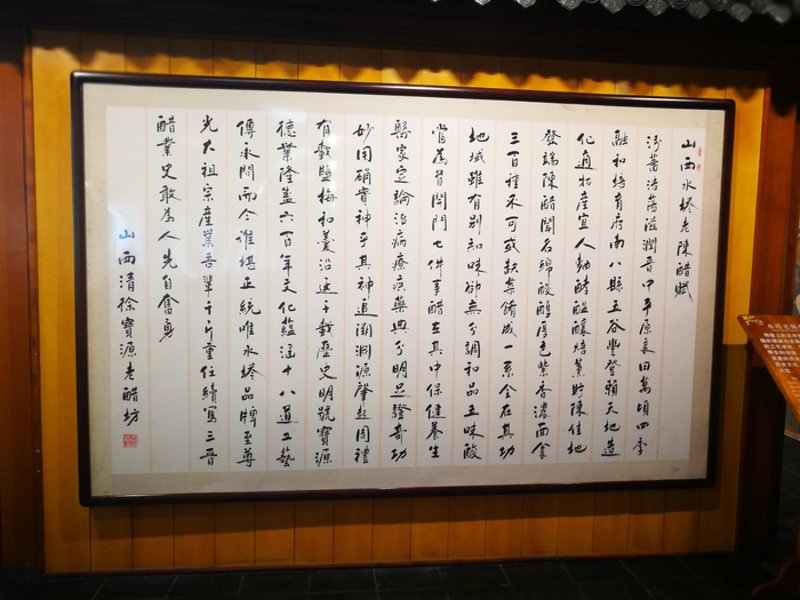 山西水塔老陳醋賦
汾蕃浩蕩滋潤晋中平原良田萬頃四季
融和培育府南八縣五谷豐登賴天地造
化適物産宜人勤酵醖釀焙薰貯陳佳地
發端陳醋聞名綿酸醇厚色紫香濃面食
三百種不可或缺菜餚成一系全在其功
地域雖有别知味卻無分調和品五味酸
當爲首開門七件事醋在其中保健養生
醫家定論治病療疾藥典分明足證奇功
妙用确貴神乎其神追溯淵源肇起周禮
有載鹽梅和羹沿逕千載歷史明號寶源
德業隆盖六百年文化蕴涵十八道工藝
傳承問而今誰堪正統唯水塔品牌至尊
光大祖宗産業吾輩千斤重任續寫三晋
醋業史敢爲人先自奮勇
山西清徐寶源老醋坊